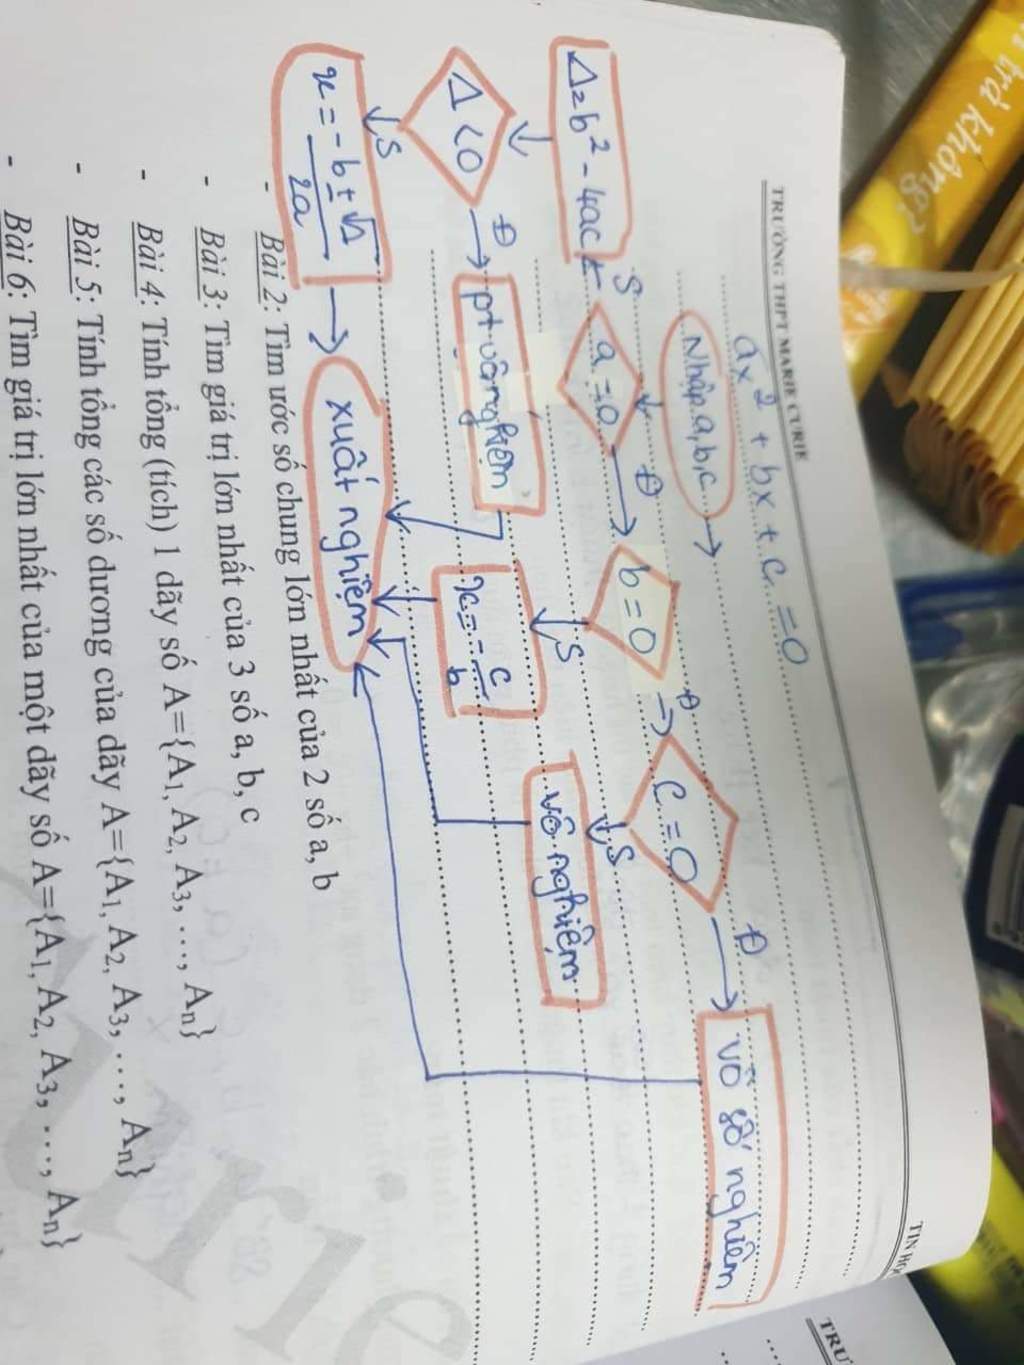 trà không?
TRƯỜNG THPT MARIE CURIE
TIN HỌC
ax² + bx + c = 0
Nhập a, b, c
S
Đ
Đ
Đ
Δ = b² - 4ac
a = 0
b = 0
c = 0
vô số nghiệm
S
S
Đ
Δ < 0
pt vô nghiệm
x = -c/b
vô nghiệm
S
x = (-b ± √Δ)/2a
xuất nghiệm
- Bài 2: Tìm ước số chung lớn nhất của 2 số a, b
- Bài 3: Tìm giá trị lớn nhất của 3 số a, b, c
- Bài 4: Tính tổng (tích) 1 dãy số A={A₁, A₂, A₃, …, Aₙ}
- Bài 5: Tính tổng các số dương của dãy A={A₁, A₂, A₃, …, Aₙ}
- Bài 6: Tìm giá trị lớn nhất của một dãy số A={A₁, A₂, A₃, …, Aₙ}
urie
TRƯ